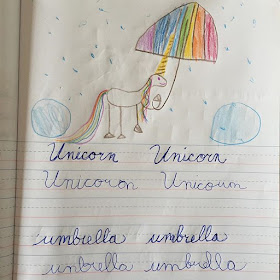 Unicorn Unicorn
Unicoron Unicoun
umbrella umbrella
unbrella umbrella